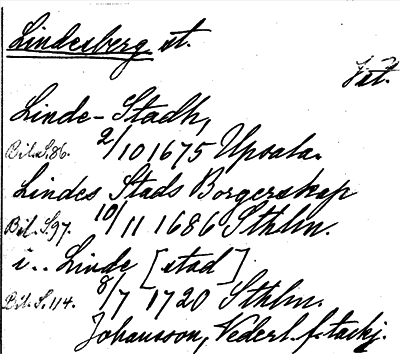 Lindesberg st.
Jät.
Linde-Stadh,
Bil. S. 86. 2/10 1675 Upsala.
Lindes Stads Borgerskap
Bil. S. 97. 10/11 1686 Sthlm.
i.. Linde [stad].
Bil. S. 114. 8/7 1720 Sthlm.
Johansson, Nederl. f. tackj.